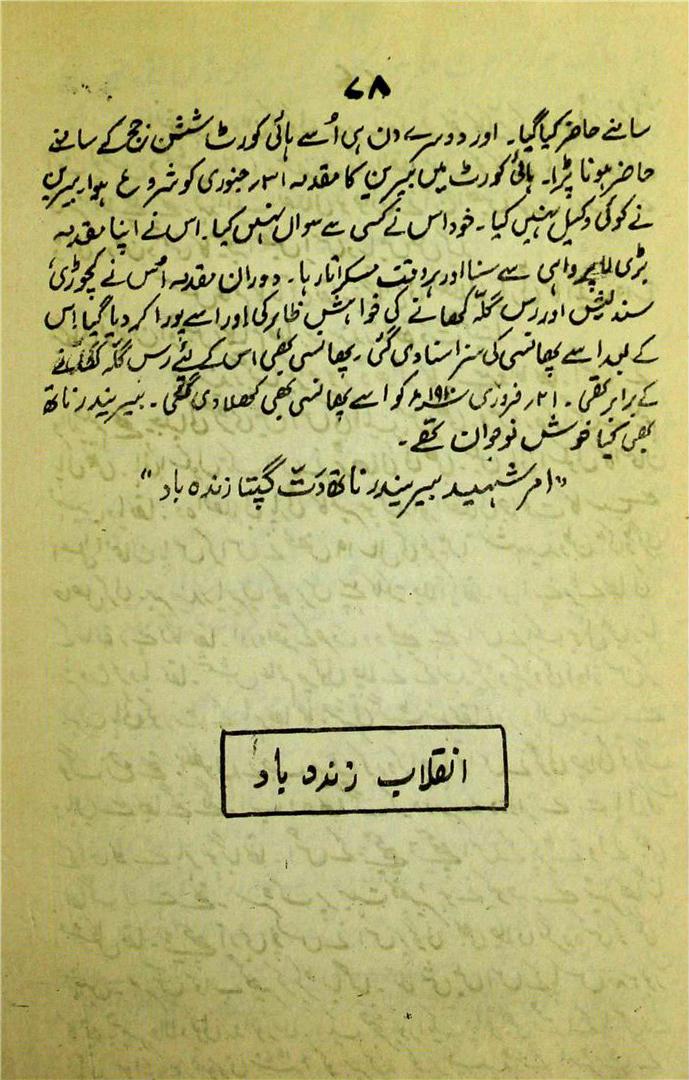 ۷۸
سامنے حاضر کیا گیا۔ اور دوسرے دن ہی اُسے ہائی کورٹ ششن جج کے سامنے
حاضر ہونا پڑا۔ ہائی کورٹ میں بیرین کا مقدمہ ۳۱ جنوری کو شروع ہوا۔ بیرین
نے کوئی وکیل نہیں کیا۔ خود اس نے کسی سے سوال نہیں کیا۔ اس نے اپنا مقدمہ
بڑی لاپرواہی سے سنا اور ہر وقت مسکراتا رہا۔ دوران مقدمہ اس نے کچوڑی،
سندیش اور رس گلّہ کھانے کی خواہش ظاہر کی اور اسے پورا کر دیا گیا۔ اس
کے بعد اسے پھانسی کی سزا سنا دی گئی۔ پھانسی بھی اس کے لئے رس گلّہ کھانے
کے برابر تھی۔ ۲۱ فروری ۱۹۱۰ء کو اسے پھانسی بھی کھلا دی گئی۔ بیریندر ناتھ
بھی کیا خوش نوجوان تھے۔
"امر شہید بیریندر ناتھ دتّ گپتا زندہ باد"
انقلاب زندہ باد